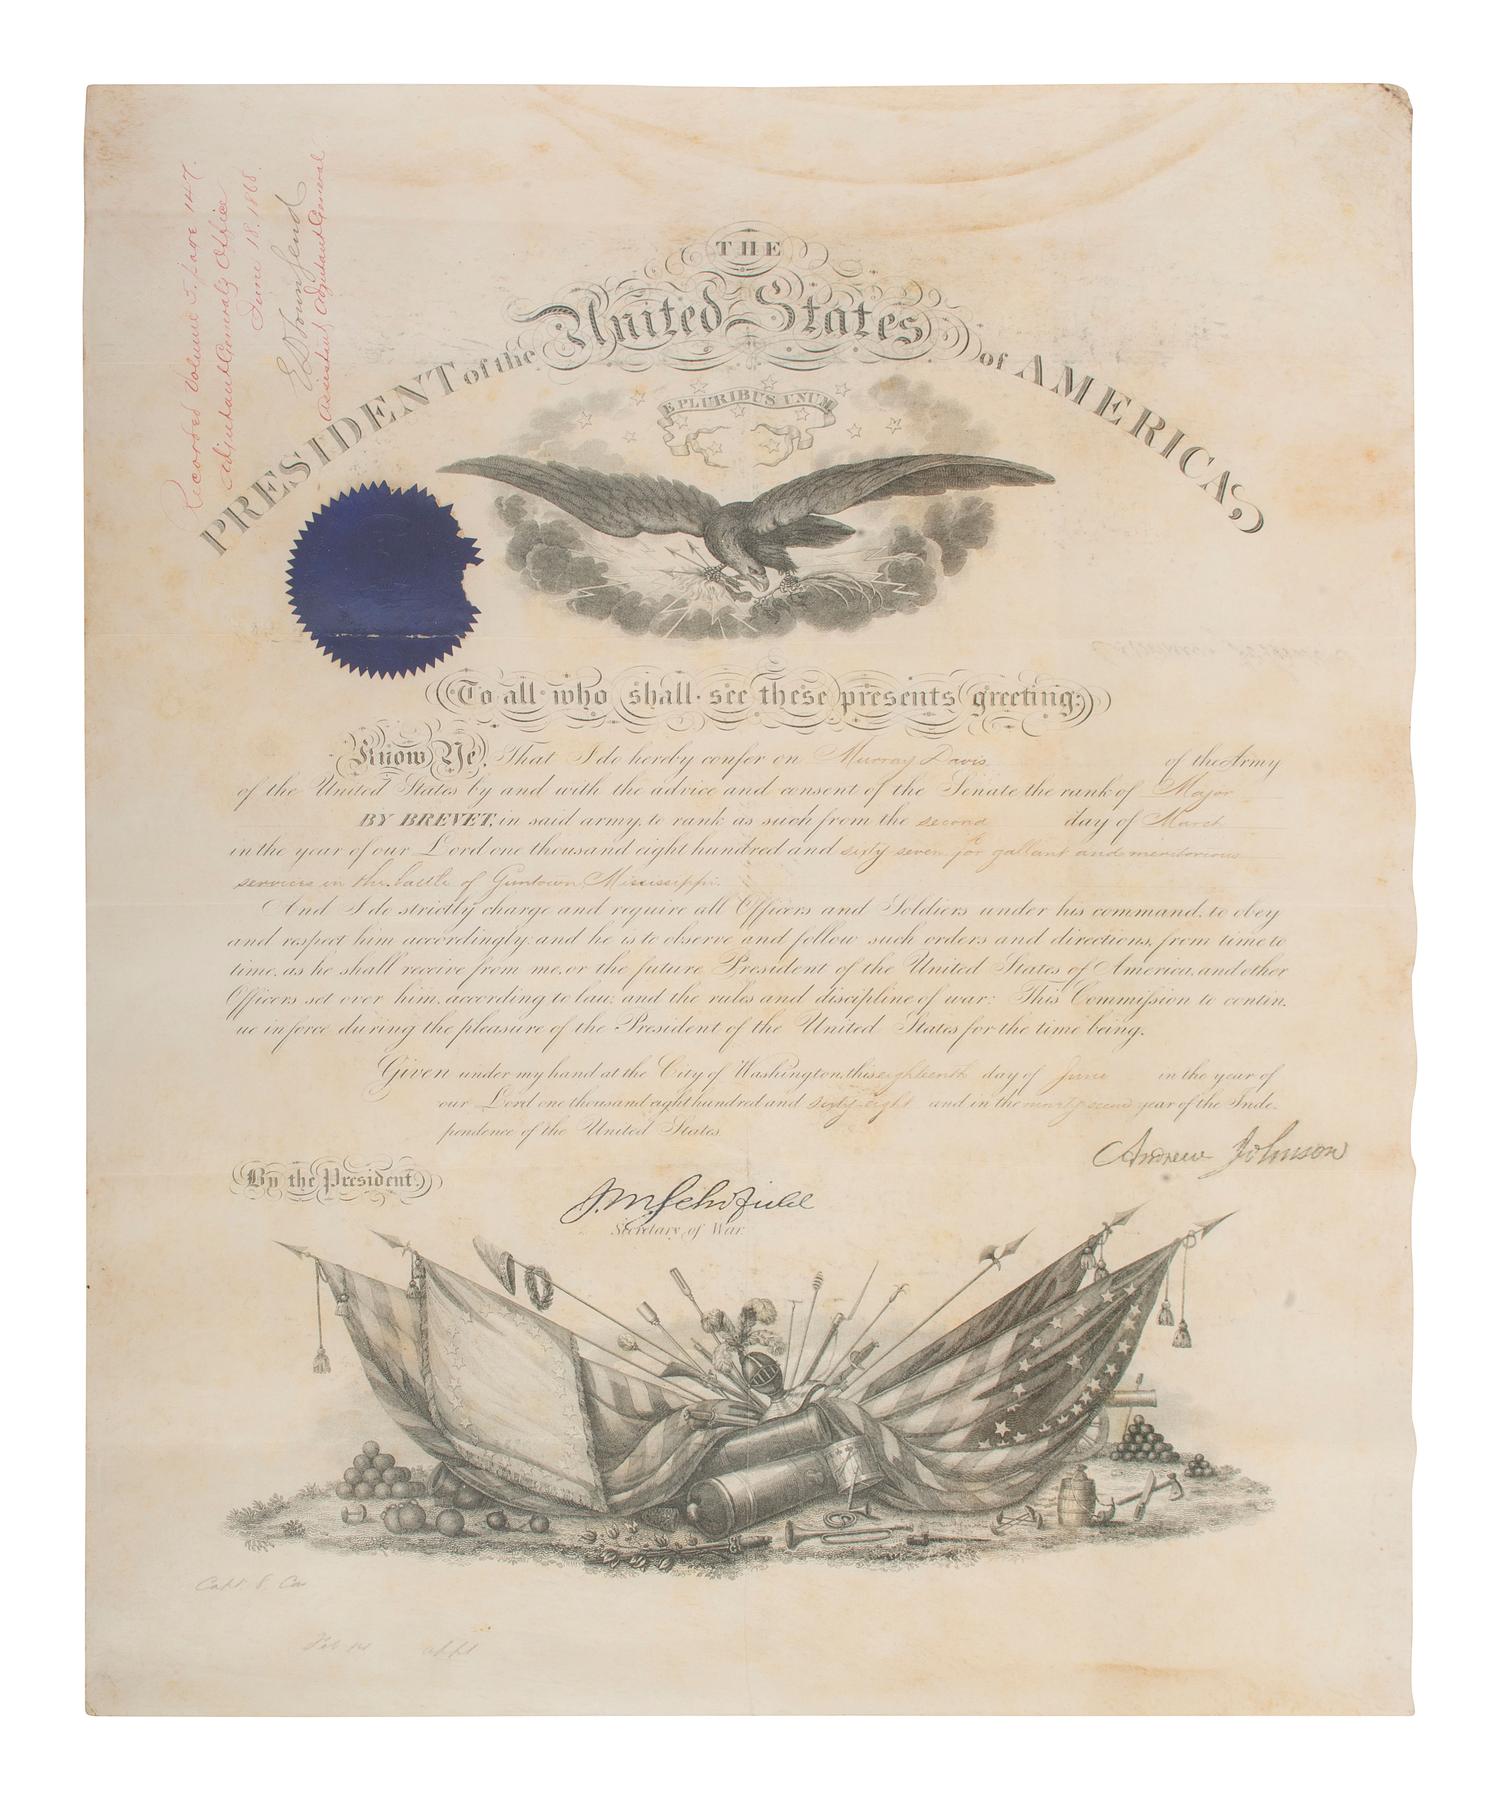 Recorded Volume 5, page 147.
Adjutant General's Office
June 18. 1868.
E D Townsend
Assistant Adjutant General
THE
PRESIDENT of the United States of AMERICA
E PLURIBUS UNUM
To all who shall see these presents greeting:
Know Ye, That I do hereby confer on Murray Davis of the Army
of the United States by and with the advice and consent of the Senate the rank of Major
BY BREVET, in said army, to rank as such from the second day of March
in the year of our Lord one thousand eight hundred and sixty seven for gallant and meritorious
services in the battle of Guntown, Mississippi.
And I do strictly charge and require all Officers and Soldiers under his command, to obey
and respect him accordingly; and he is to observe and follow such orders and directions, from time to
time, as he shall receive from me, or the future President of the United States of America, and other
Officers set over him, according to law; and the rules and discipline of war: This Commission to contin.
ue in force during the pleasure of the President of the United States for the time being.
Given under my hand at the City of Washington, this eighteenth day of June in the year of
our Lord one thousand eight hundred and sixty eight and in the ninety second year of the Inde-
pendence of the United States.
Andrew Johnson
By the President,
J.M. Schofield
Secretary of War.
Capt. 8. Ca